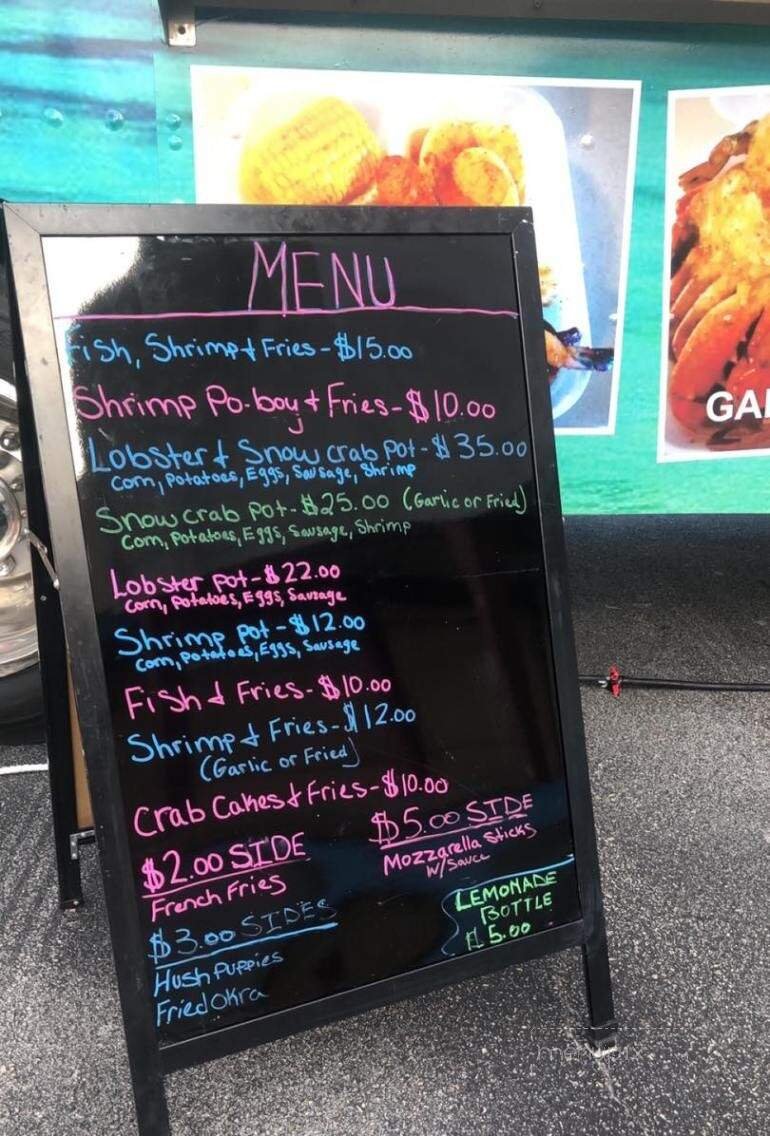 MENU
Fish, Shrimp & Fries - $15.00
Shrimp Po-boy & Fries - $10.00
Lobster & Snow crab pot - $35.00
Corn, Potatoes, Eggs, Sausage, Shrimp
Snow crab pot - $25.00 (Garlic or Fried)
Corn, Potatoes, Eggs, Sausage, Shrimp
Lobster pot - $22.00
Corn, Potatoes, Eggs, Sausage
Shrimp pot - $12.00
Corn, Potatoes, Eggs, Sausage
Fish & Fries - $10.00
Shrimp & Fries - $12.00
(Garlic or Fried)
Crab Cakes & Fries - $10.00
$2.00 SIDE
French Fries
$5.00 SIDE
Mozzarella Sticks
w/Sauce
$3.00 SIDES
Hush Puppies
Fried Okra
LEMONADE
BOTTLE
$5.00
GA